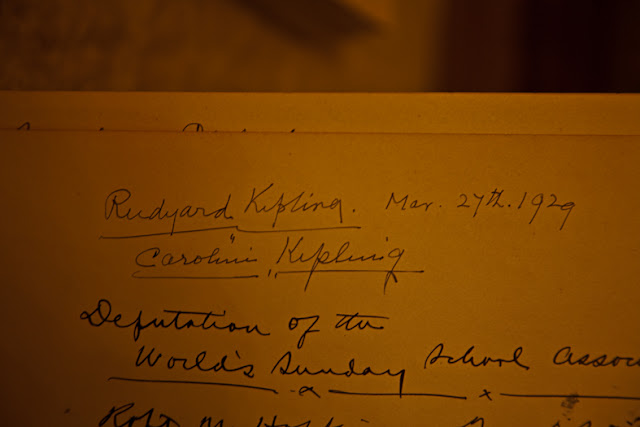 Rudyard Kipling. Mar. 27th. 1929
Caroline Kipling
Deputation of the
World's Sunday School Assoc
Robt M. Hopkins